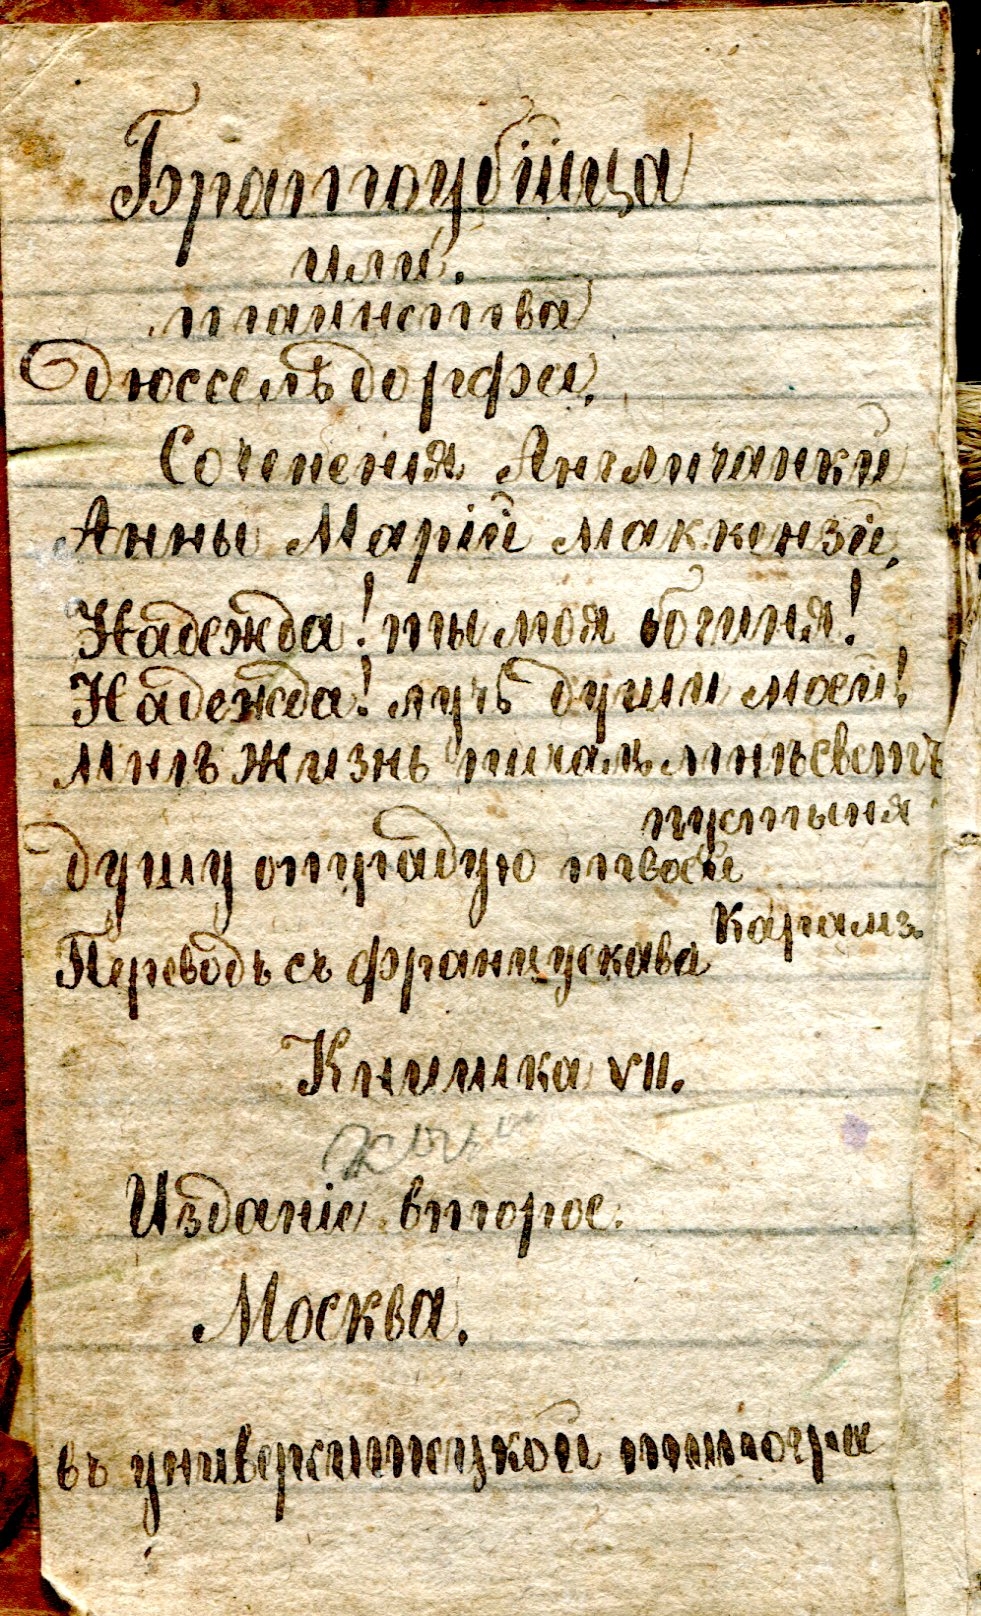 Братоубійца
или.
таинства
дюссельдорфа,
Сочененія Англичанки
Анны Маріи маккензи,
Надежда! ты моя богиня!
Надежда! лучь души моей!
Мнѣ жизнь пичаль мнѣ светъ
пустыня
душу отрадую твоей
Карамз.
Переводъ съ францускава
Книшка VII.
Изданіе второе.
Москва.
въ универкситецкой типогра